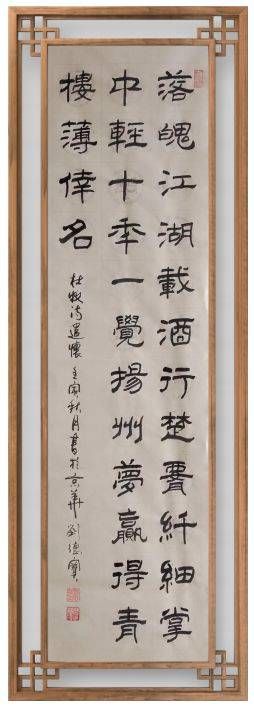 落魄江湖載酒行楚腰纤細掌
中輕十年一覺揚州夢贏得青
樓薄倖名
杜牧诗遣懷 壬寅秋月書於京華 劉德寶